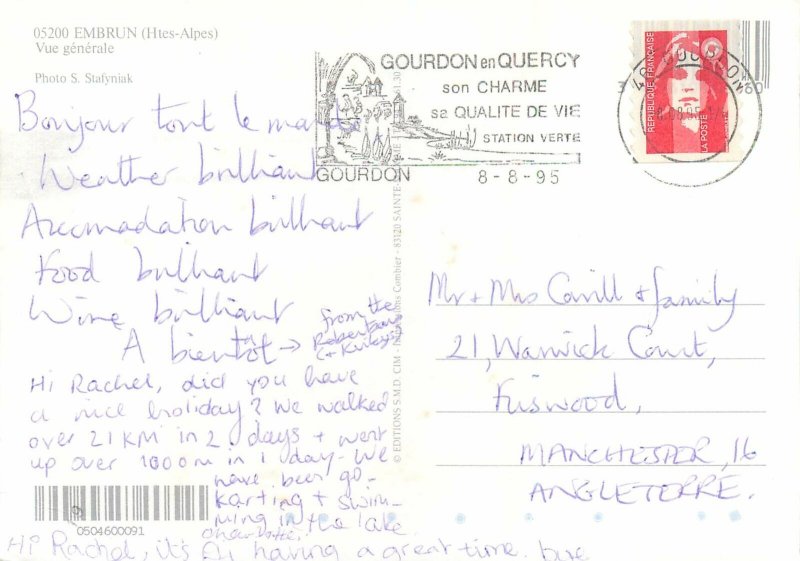 05200 EMBRUN (Htes-Alpes)
Vue générale
Photo S. Stafyniak
GOURDON en QUERCY
son CHARME
sa QUALITE DE VIE
STATION VERTE
GOURDON
8-8-95
REPUBLIQUE FRANÇAISE
LA POSTE
46 GOURDON
Bonjour tout le monde
Weather brilliant
Accomadation brilliant
Food brilliant
Wine brilliant
A bientot → from the
Hi Rachel, did you have
a nice holiday? We walked
over 21KM in 2 days + went
up over 1000m in 1 day. We
have been go-
karting + swim-
ming in the lake
Hi Rachel, it's having a great time. bye
Mr + Mrs & family
21, Warwick Court,
MANCHESTER, 16
ANGLETERRE.
© EDITIONS S.M.D CIM - Combier - 83120 SAINTE-
0504600091